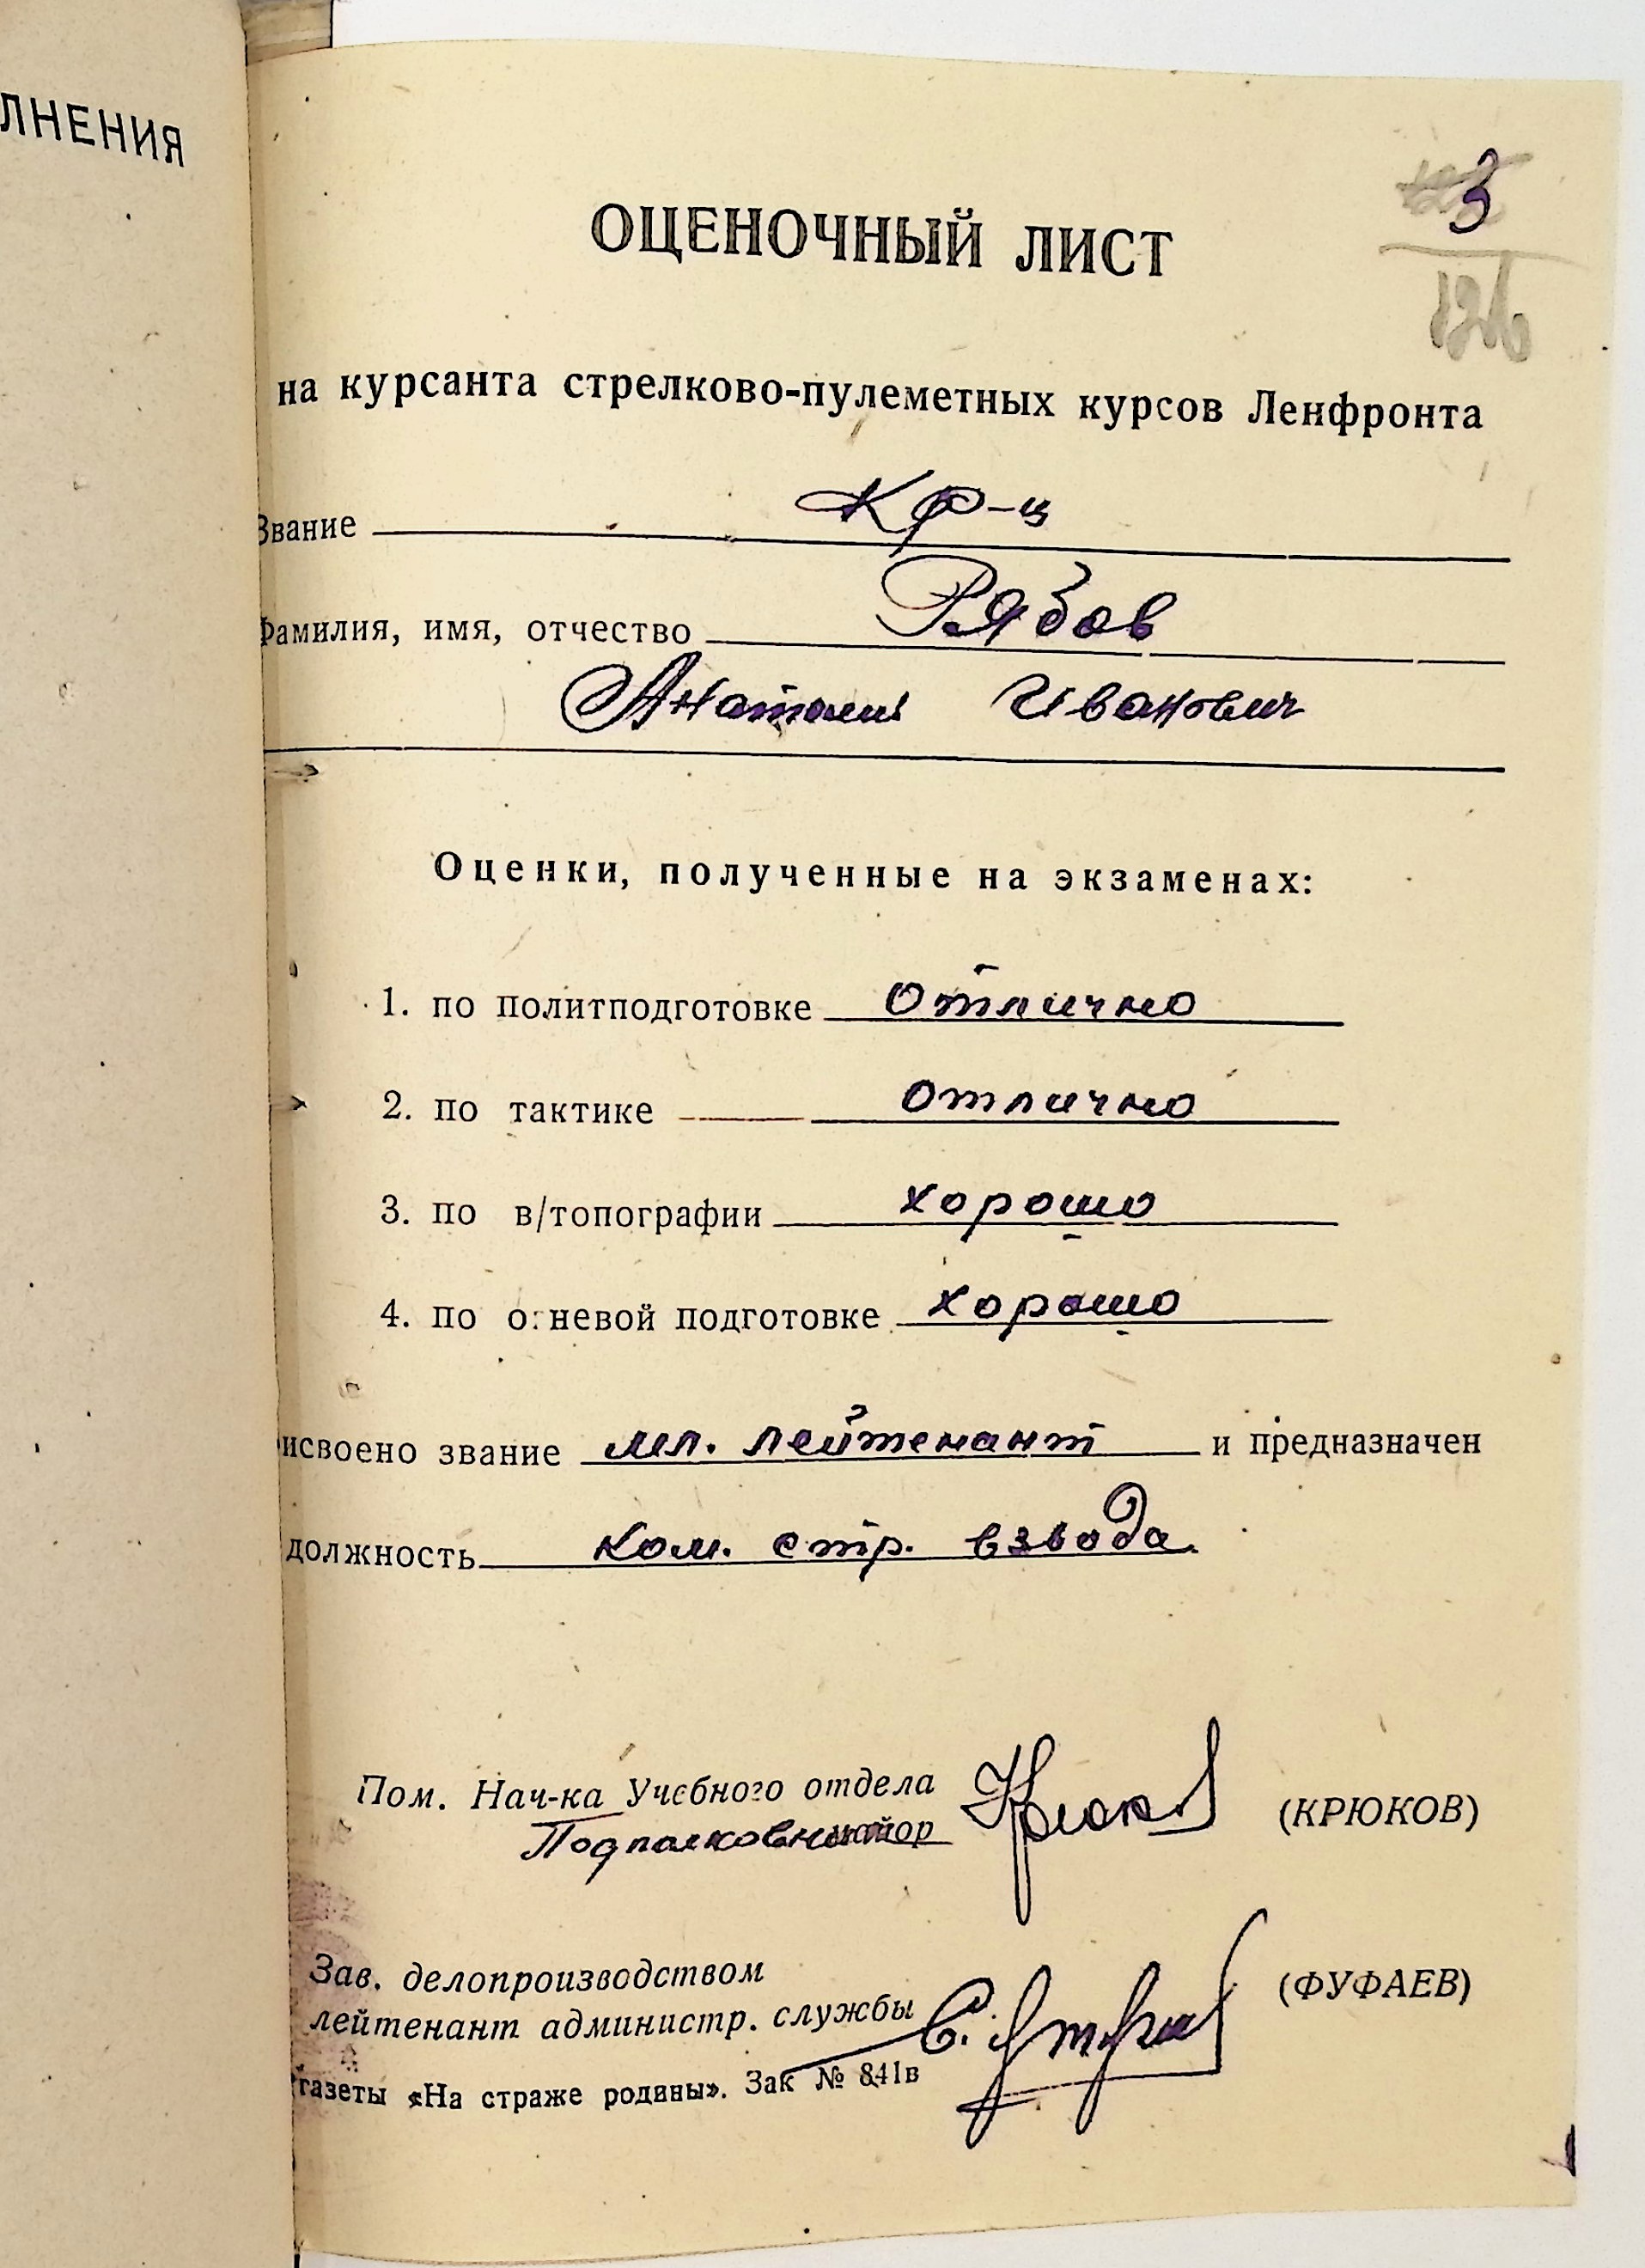 ЛНЕНИЯ
3
126
ОЦЕНОЧНЫЙ ЛИСТ
на курсанта стрелково-пулеметных курсов Ленфронта
Звание КР-ц
Фамилия, имя, отчество Рябов
Анатолий Иванович
Оценки, полученные на экзаменах:
1. по политподготовке отлично
2. по тактике отлично
3. по в/топографии хорошо
4. по огневой подготовке хорошо
исвоено звание мл. лейтенант и предназначен
должность ком. стр. взвода.
Пом. Нач-ка Учебного отдела
Подполковник майор Крюков (КРЮКОВ)
Зав. делопроизводством
лейтенант администр. службы (ФУФАЕВ)
газеты «На страже родины». Зак № 841в